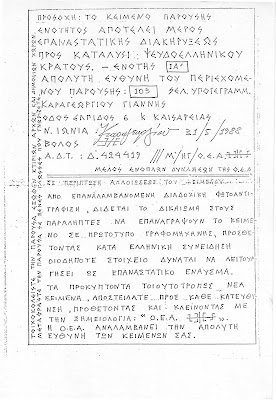 ΠΡΟΣΟΧΗ: ΤΟ ΚΕΙΜΕΝΟ ΠΑΡΟΥΣΗΣ
ΕΝΟΤΗΤΟΣ ΑΠΟΤΕΛΕΙ ΜΕΡΟΣ
ΕΠΑΝΑΣΤΑΤΙΚΗΣ ΔΙΑΚΗΡΥΞΕΩΣ
ΠΡΟΣ ΚΑΤΑΛΥΣΙ: ΨΕΥΔΟΕΛΛΗΝΙΚΟΥ
ΚΡΑΤΟΥΣ. - ΕΝΟΤΗΣ
ΑΠΟΛΥΤΗ ΕΥΘΥΝΗ ΤΟΥ ΠΕΡΙΕΧΟΜΕ-
ΝΟΥ ΠΑΡΟΥΣΗΣ: 103 ΣΕΛ. ΥΠΟΓΕΓΡΑΜΜ.
ΚΑΡΑΓΕΩΡΓΙΟΥ ΓΙΑΝΝΗΣ
ΟΔΟΣ ΣΑΡΙΔΟΣ 6 Χ ΚΑΙΣΑΡΕΙΑΣ
Ν. ΙΩΝΙΑ 21/5/1988
ΒΟΛΟΣ
Α.Δ.Τ.: Δ. 424459 /// Μ/ΗΣ/Ο.Ε.Α.
ΜΕΛΟΣ ΕΝΟΠΛΩΝ ΔΥΝΑΜΕΩΝ ΤΗΣ Ο.Ε.Α
ΣΕ ΠΕΡΙΠΤΩΣΗ ΑΛΛΟΙΩΣΕΩΣ ΤΟΥ
ΑΠΟ ΕΠΑΝΑΛΑΜΒΑΝΟΜΕΝΗ ΔΙΑΔΟΧΙΚΗ ΦΩΤΟΑΝΤΙ-
ΓΡΑΦΙΣΗ, ΔΙΔΕΤΑΙ ΤΟ ΔΙΚΑΙΩΜΑ ΣΤΟΥΣ
ΠΑΡΑΛΗΠΤΕΣ ΝΑ ΕΠΑΝΑΓΡΑΦΟΥΝ ΤΟ ΚΕΙΜΕ-
ΝΟ ΣΕ ΠΡΩΤΟΤΥΠΟ ΓΡΑΦΟΜΗΧΑΝΗΣ, ΠΡΟΣΘΕ-
ΤΟΝΤΑΣ ΚΑΤΑ ΕΛΛΗΝΙΚΗ ΣΥΝΕΙΔΗΣΗ
ΟΙΟΔΗΠΟΤΕ ΣΤΟΙΧΕΙΟ ΔΥΝΑΤΑΙ ΝΑ ΛΕΙΤΟΥΡ
ΓΗΣΕΙ ΩΣ ΕΠΑΝΑΣΤΑΤΙΚΟ ΕΝΑΥΣΜΑ.
ΤΑ ΠΡΟΚΥΠΤΟΝΤΑ ΤΟΙΟΥΤΟΤΡΟΠΩΣ ΝΕΑ
ΚΕΙΜΕΝΑ, ΑΠΟΣΤΕΙΛΑΤΕ ΠΡΟΣ ΚΑΘΕ ΚΑΤΕΥΘΥ
ΝΣΗ, ΠΡΟΘΕΤΟΝΤΑΣ ΚΑΙ ΚΛΕΙΝΟΝΤΑΣ ΜΕ
ΤΗΝ ΣΗΜΕΙΟΛΟΓΙΑ: " Ο.Ε.Α. ".
Η Ο.Ε.Α. ΑΝΑΛΑΜΒΑΝΕΙ ΤΗΝ ΑΠΟΛΥΤΗ
ΕΥΘΥΝΗ ΤΩΝ ΚΕΙΜΕΝΩΝ ΣΑΣ.